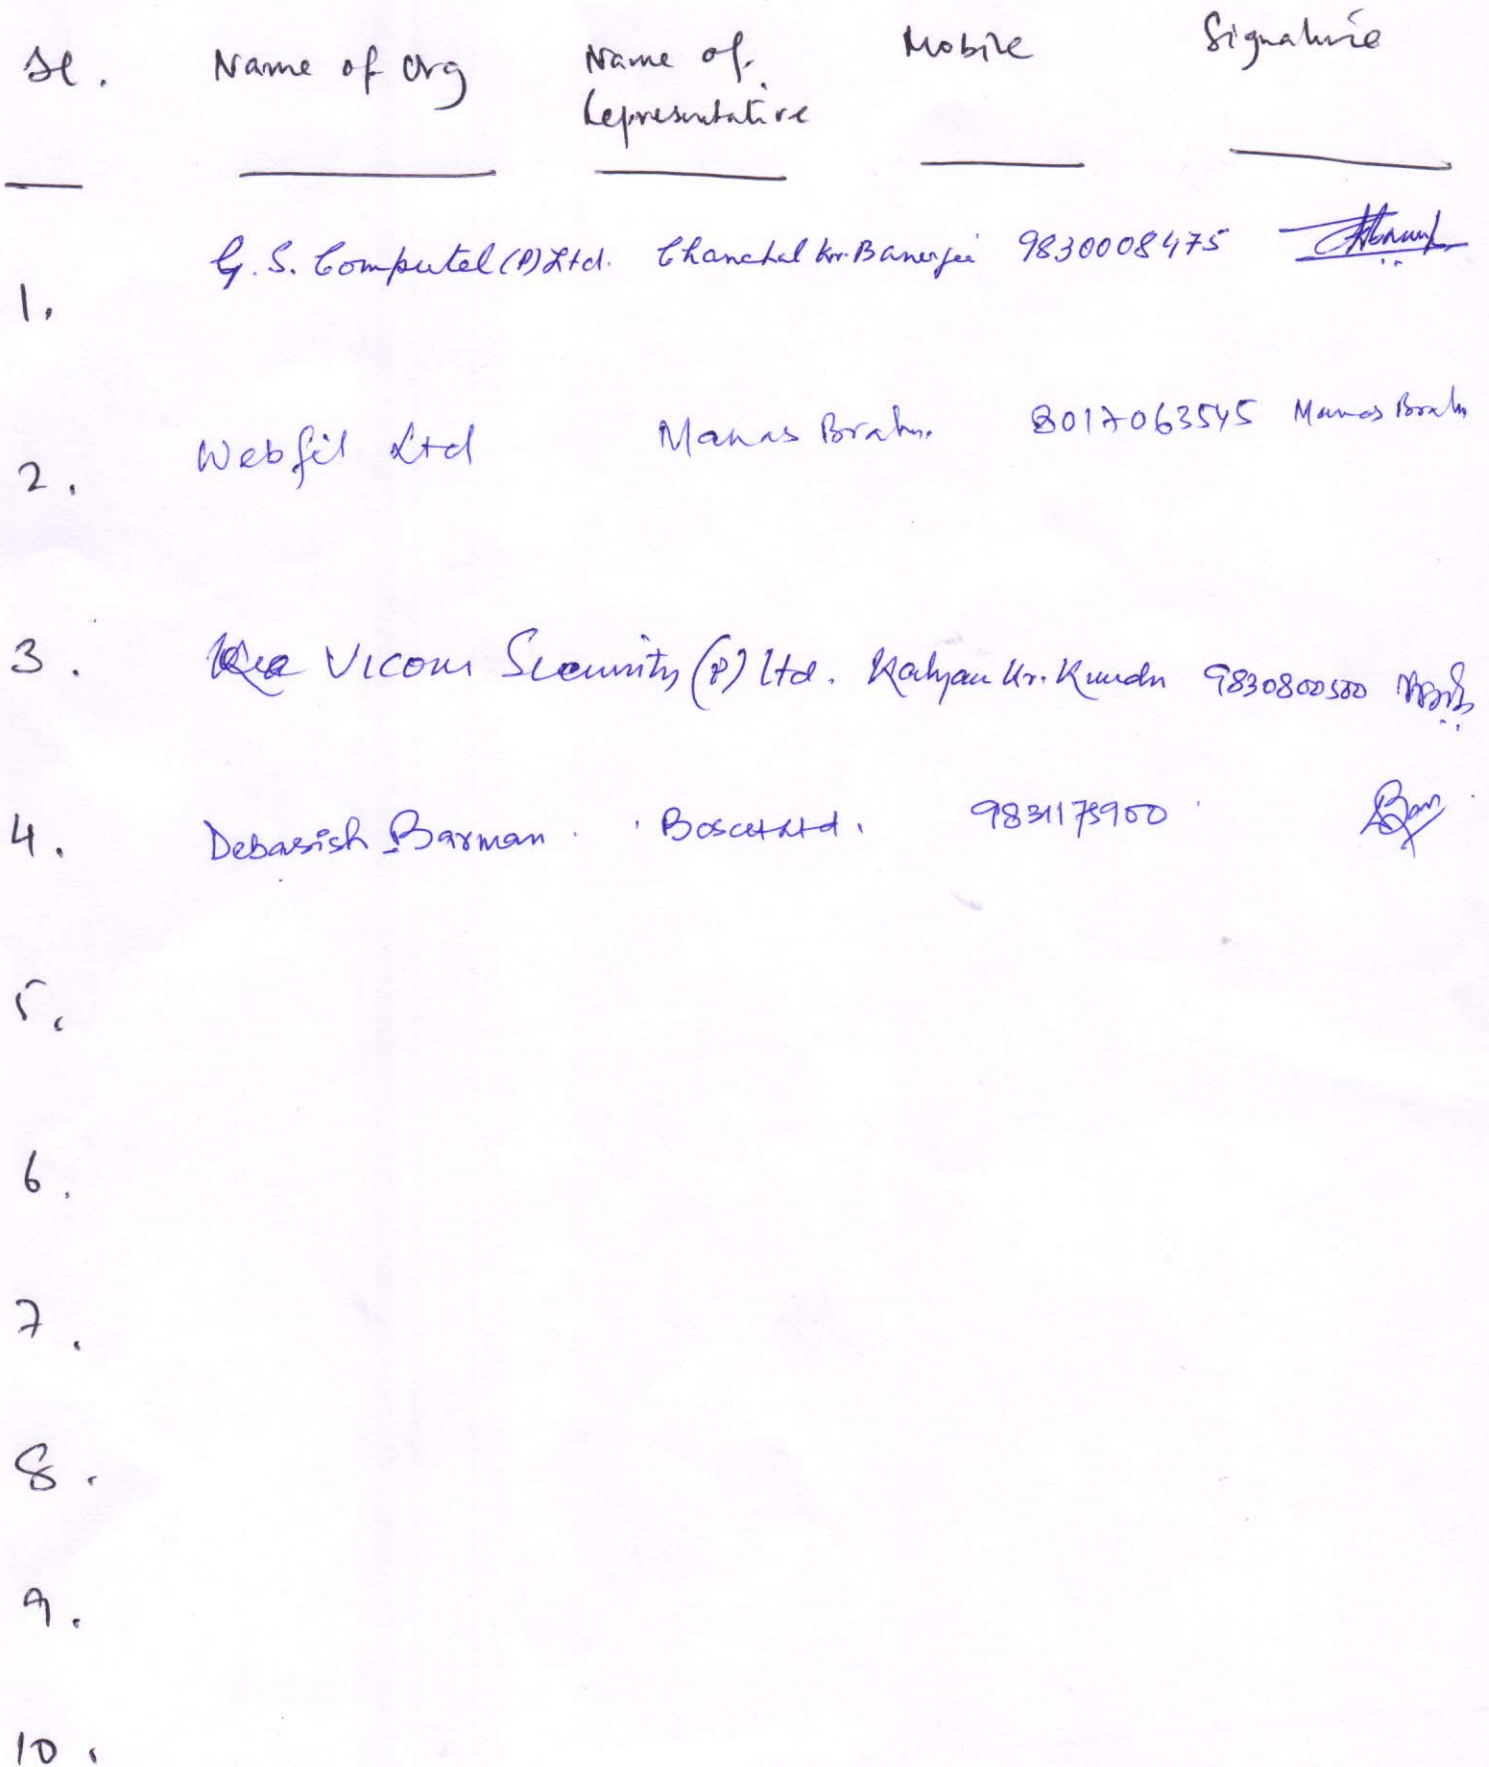 Sl. Name of Org Name of Representative Mobile Signature
1. G. S. Computel (P) Ltd. Chanchal Kr. Banerjee 9830008475
2. Webfil Ltd Manas Brahm. 8017063545 Manas Brahm
3. Vicom Security (P) Ltd. Kalyan Kr. Kundu 9830800500
4. Debasish Barman. Ltd. 9831175900
5.
6.
7.
8.
9.
10.